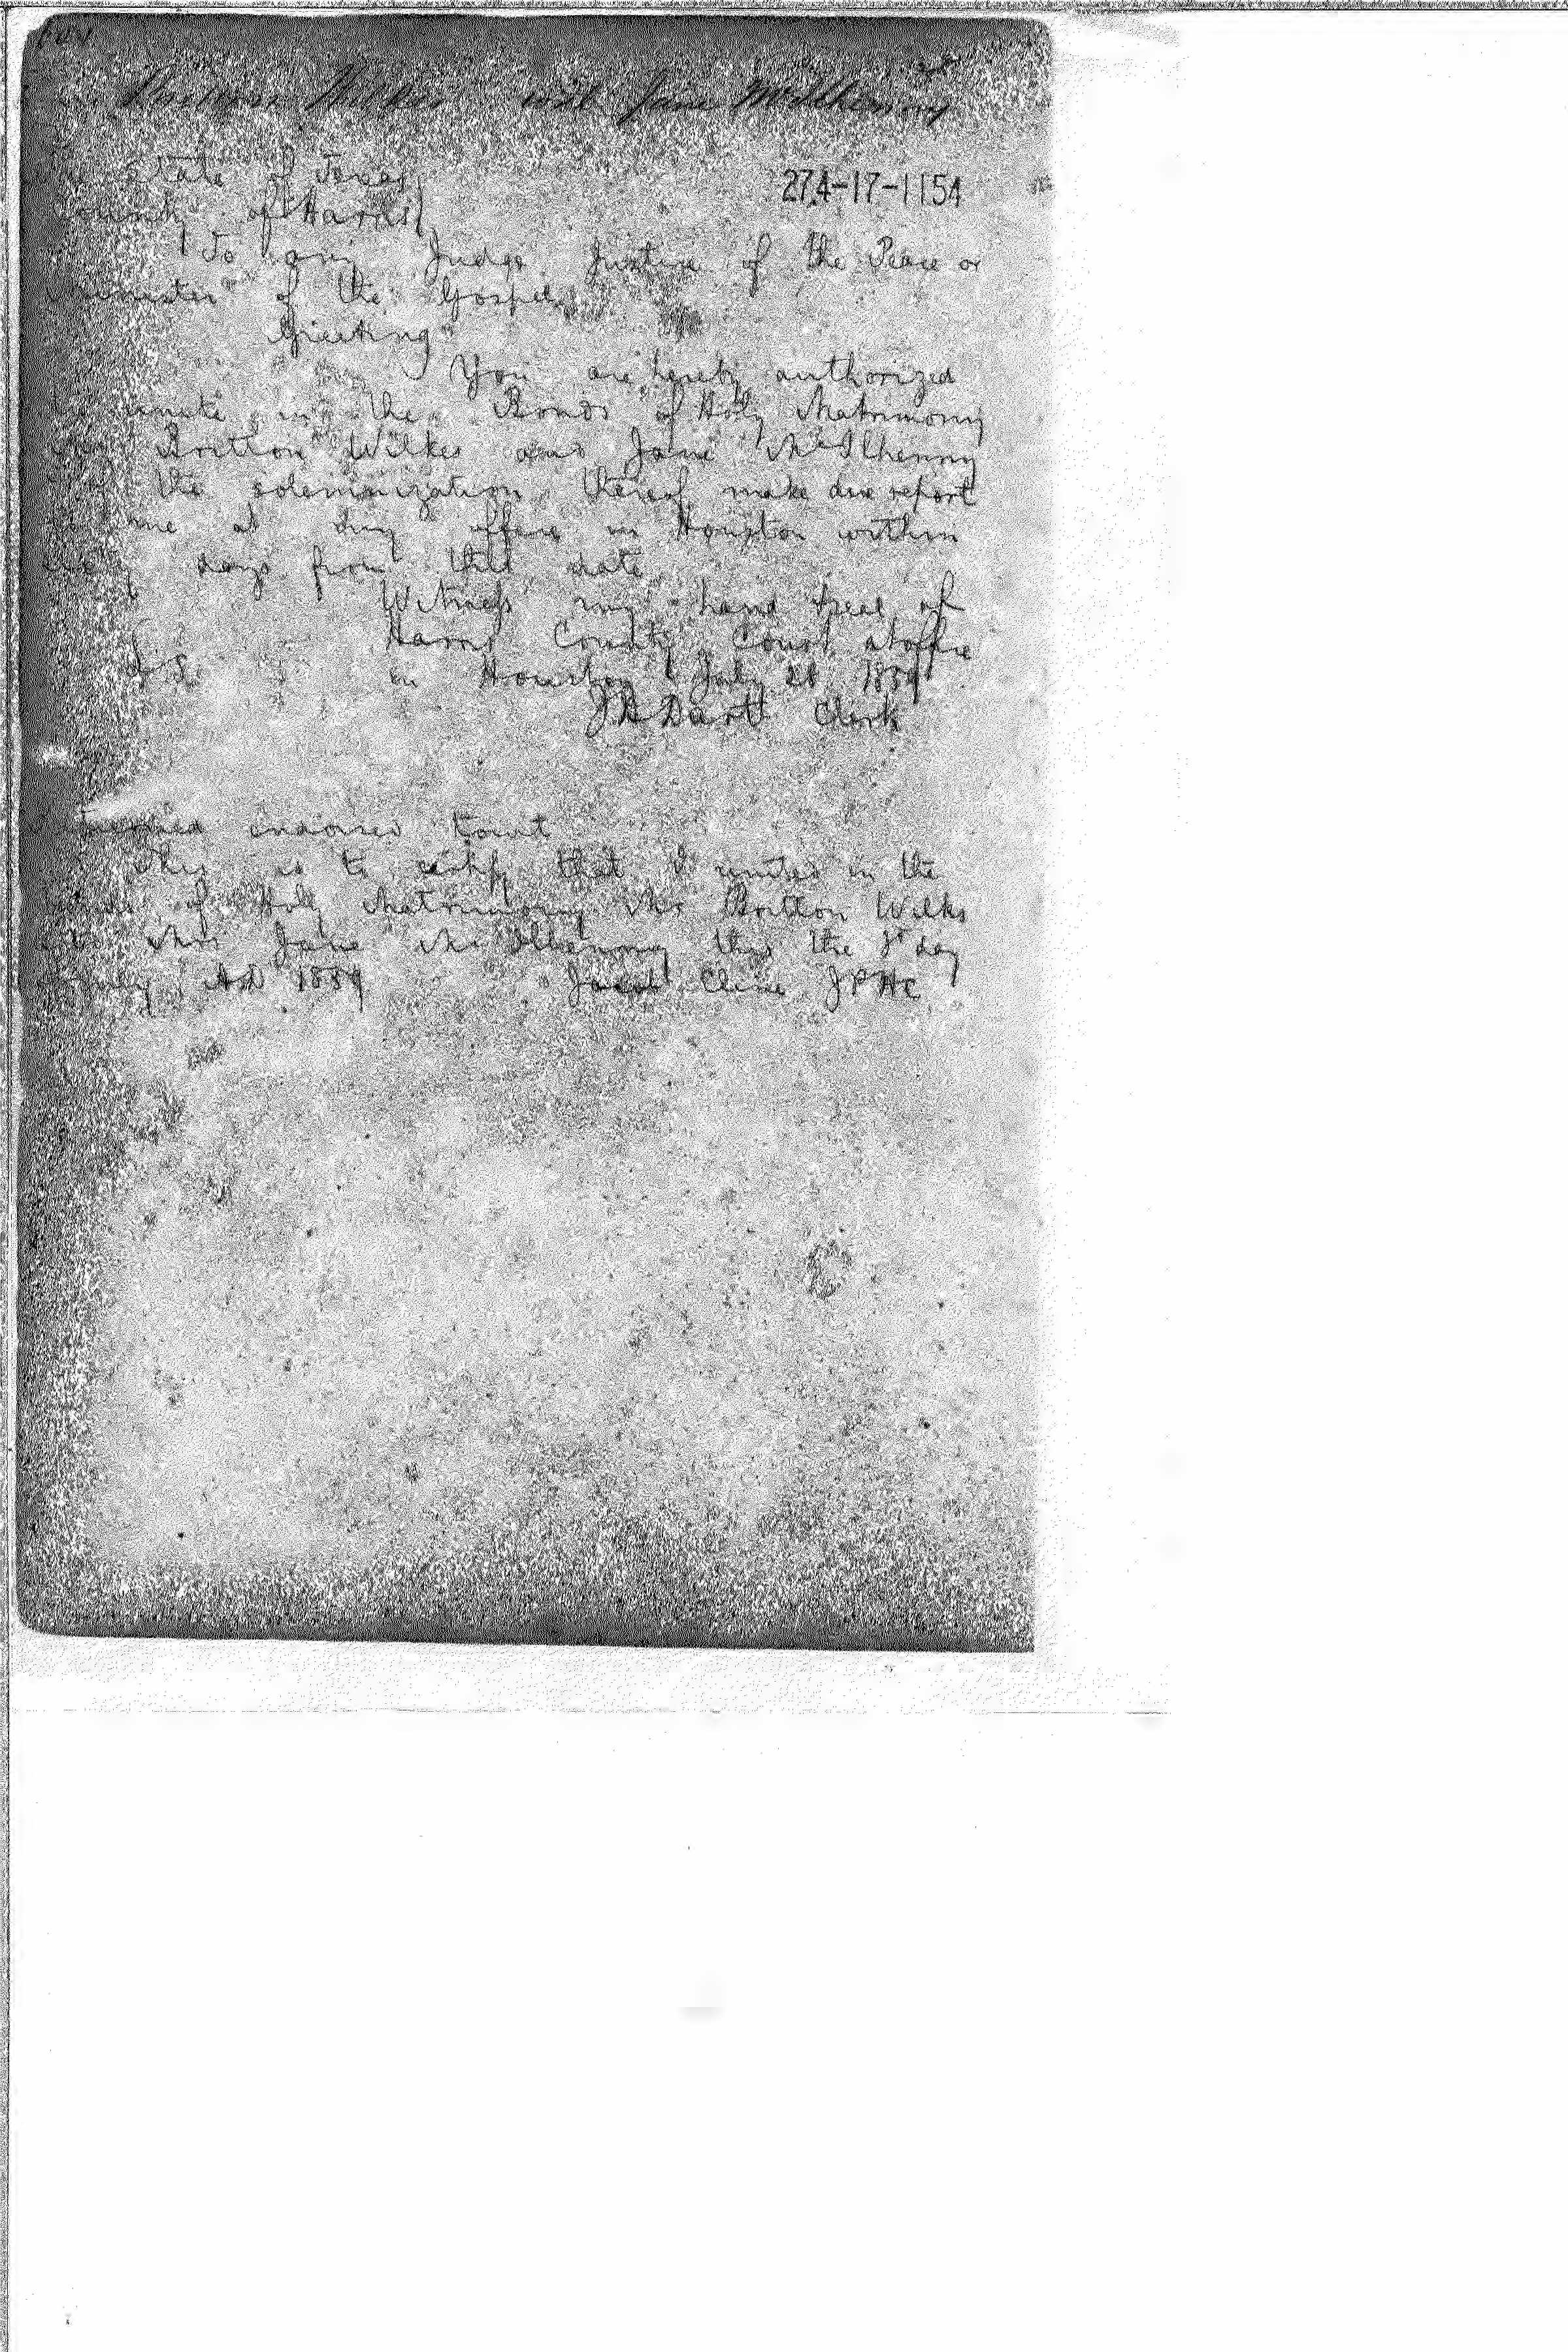 Wilkes with Jane McIlhenny
State of Texas
County of Harris
274-17-1154
To any Judge Justice of the Peace or
Minister of the Gospel
Greeting
You are hereby authorized
to unite in the Bonds of Holy Matrimony
Britton Wilkes and Jane McIlhenny
the solemnization thereof make due report
to me at my office in Houston within
days from this date
Witness my hand & seal of
Harris County Court at office
in Houston July 28 1839
Clerk
Returned endorsed to wit
This is to certify that I united in the
of Holy Matrimony Mr Britton Wilks
Mrs Jane McIlhenny this the day
AD 1839 Jacob Cline JPHC